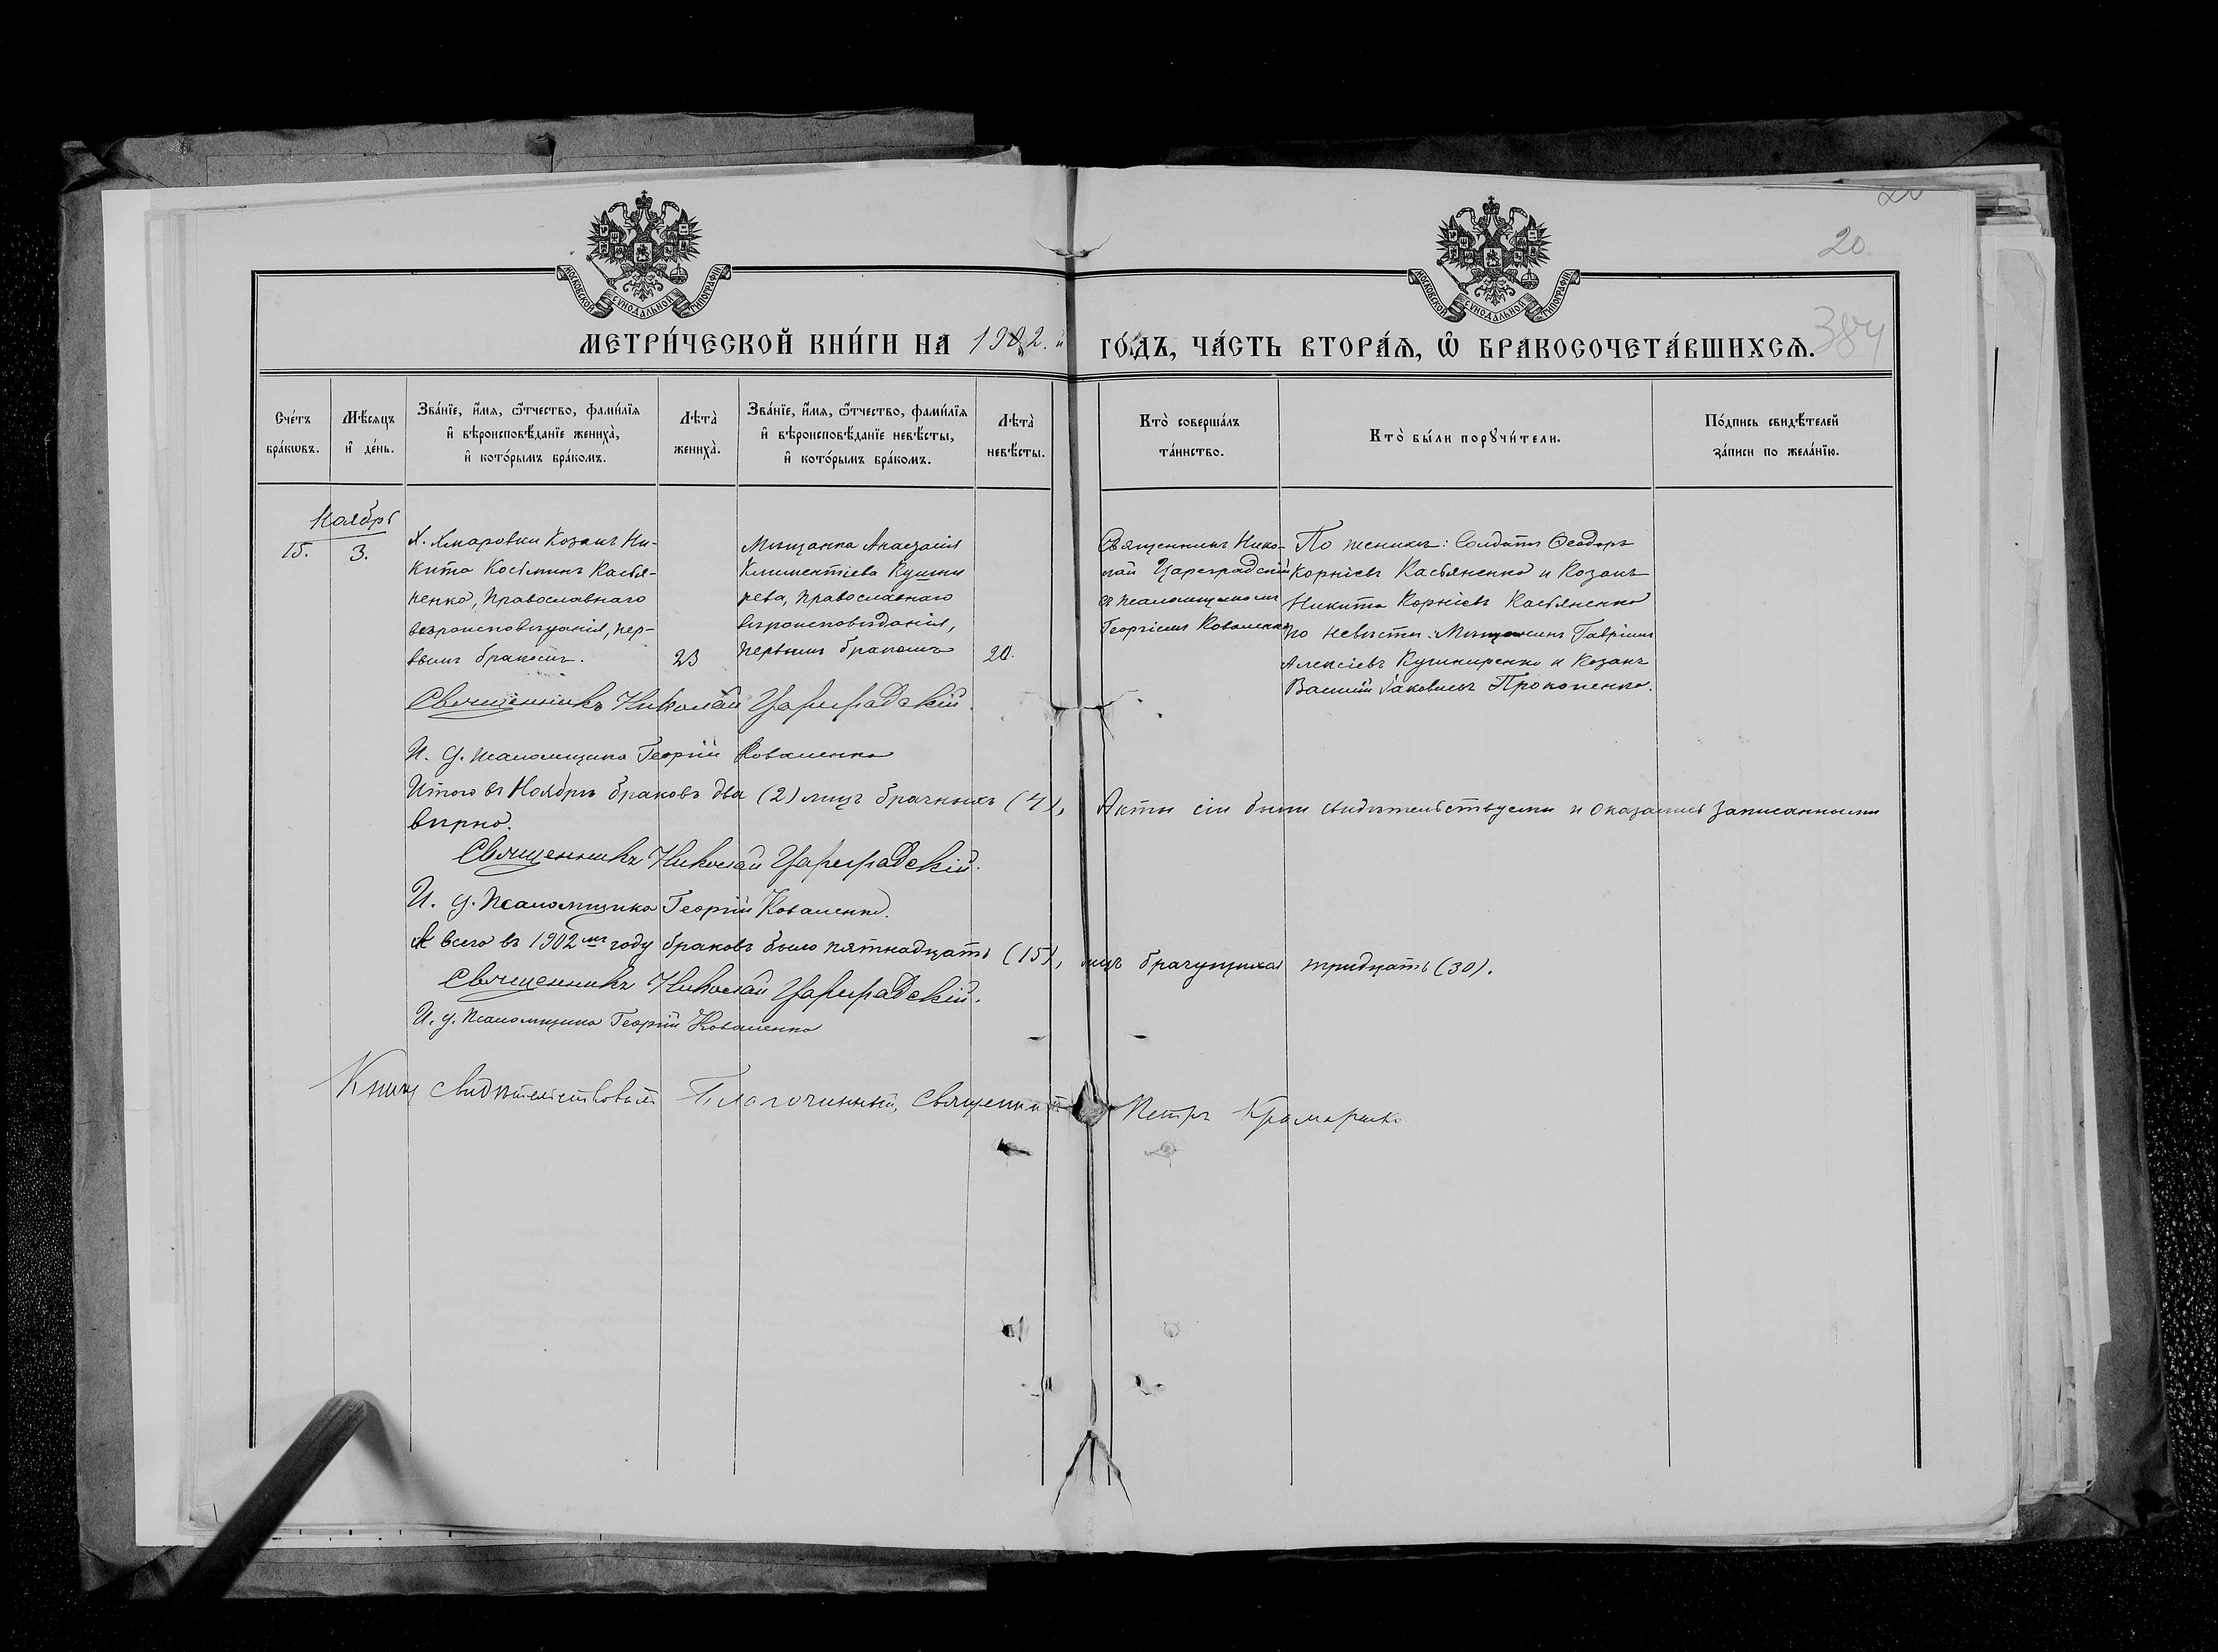 20
384
МОСКОВСКОЙ СУНОДАЛЬНОЙ ТИПОГРАФІИ
МОСКОВСКОЙ СУНОДАЛЬНОЙ ТИПОГРАФІИ
МЕТРИ́ЧЕСКОЙ КНИ́ГИ НА 1902.й ГО́ДЪ, ЧА́СТЬ ВТОРА́Ѧ, Ѡ҆ БРАКОСОЧЕТА́ВШИХСѦ.
Сче́тъ бра́кѡвъ.
Мѣ́сѧцъ и҆ де́нь.
Зва́нїе, и҆́мѧ, ѻ҆́тчество, фами́лїѧ
и҆ вѣроисповѣ́данїе жениха̀,
и҆ кото́рымъ бра́комъ.
Лѣта̀ жениха̀.
Зва́нїе, и҆́мѧ, ѻ҆́тчество, фами́лїѧ
и҆ вѣроисповѣ́данїе невѣ́сты,
и҆ кото́рымъ бра́комъ.
Лѣта̀ невѣ́сты.
Кто̀ соверша́лъ
та́инство.
Кто̀ бы́ли порꙋчи́тели.
По́дпись свидѣ́телей
за́писи по жела́нїю.
Ноябрь
15.
3.
Х. Хмаровки Козакъ Ни-
кита Косьминъ Касья-
ненко, православнаго
вѣроисповѣданія, пер-
вымъ бракомъ.
23
Мѣщанка Анастасія
Климентіева Кушни
рева, православнаго
вѣроисповѣданія,
первымъ бракомъ
20.
Священникъ Нико-
лай Цареградскій
съ псаломщикомъ
Георгіемъ Коваленко
По женихѣ: Солдатъ Ѳеодоръ
Корніевъ Касьяненко и Козакъ
Никита Корніевъ Касьяненко
по невѣстѣ: Мѣщанинъ Гавріилъ
Алексіевъ Кушниренко и Козакъ
Василій Іаковлевъ Прокопенко.
Священникъ Николай Цареградскій.
И. д. псаломщика Георгій Коваленко
Итого въ Ноябрѣ браковъ два (2) лицъ брачныхъ (4), Акты сіи были свидѣтельствуемы и оказались записанными
вѣрно.
Священникъ Николай Цареградскій.
И. д. псаломщика Георгій Коваленко.
А всего въ 1902мъ году браковъ было пятнадцать (15), лицъ брачущихся тридцать (30).
Священникъ Николай Цареградскій.
И. д. псаломщика Георгій Коваленко
Книгу свидѣтельствовалъ Благочинный, Священникъ Петръ